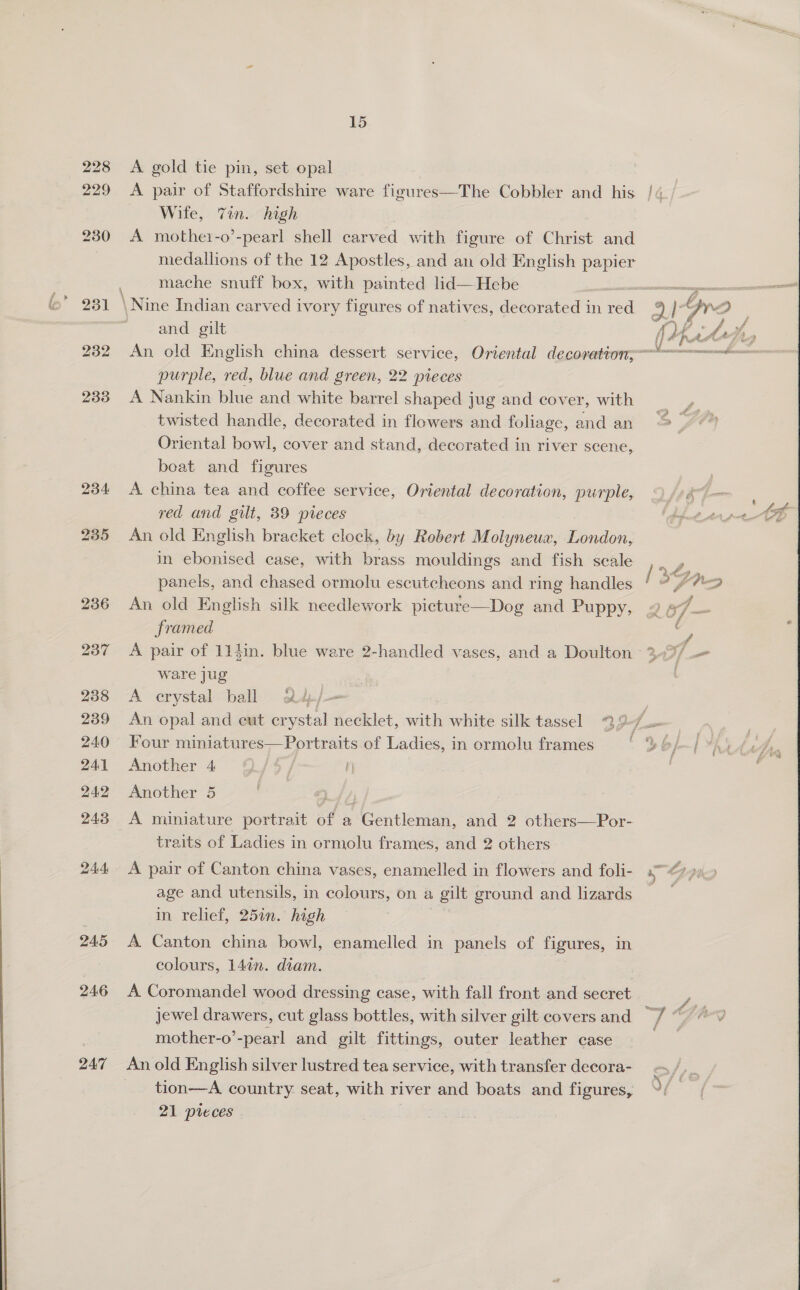 15
228 A gold tie pin, set opal
229 A pair of Staffordshire ware figures—The Cobbler and his
Wife, 7in. high
230 A mother-o’-pearl shell carved with figure of Christ and
medallions of the 12 Apostles, and an old English papier
mache snuff box, with painted lid—Hebe
231 Nine Indian carved ivory figures of natives, decorated in red
and gilt
232 An old English china dessert service, Oriental decoration,
purple, red, blue and green, 22 pieces
233 A Nankin blue and white barrel shaped jug and cover, with
twisted handle, decorated in flowers and foliage, and an
Oriental bowl, cover and stand, decorated in river scene,
boat and figures
234 A china tea and coffee service, Oriental decoration, purple,
red and gilt, 39 pieces
235 An old English bracket clock, by Robert Molyneux, London,
in ebonised case, with brass mouldings and fish scale
panels, and chased ormolu escutcheons and ring handles
236 An old English silk needlework picture—Dog and Puppy,
framed
237 A pair of 11½in. blue ware 2-handled vases, and a Doulton
ware jug
238 A crystal ball 24/-
239 An opal and cut crystal necklet, with white silk tassel
240 Four miniatures—Portraits of Ladies, in ormolu frames
241 Another 4
242 Another 5
243 A miniature portrait of a Gentleman, and 2 others—Por-
traits of Ladies in ormolu frames, and 2 others
244 A pair of Canton china vases, enamelled in flowers and foli-
age and utensils, in colours, on a gilt ground and lizards
in relief, 25in. high
245 A Canton china bowl, enamelled in panels of figures, in
colours, 14in. diam.
246 A Coromandel wood dressing case, with fall front and secret
jewel drawers, cut glass bottles, with silver gilt covers and
mother-o’-pearl and gilt fittings, outer leather case
247 An old English silver lustred tea service, with transfer decora-
tion—A country seat, with river and boats and figures,
21 pieces